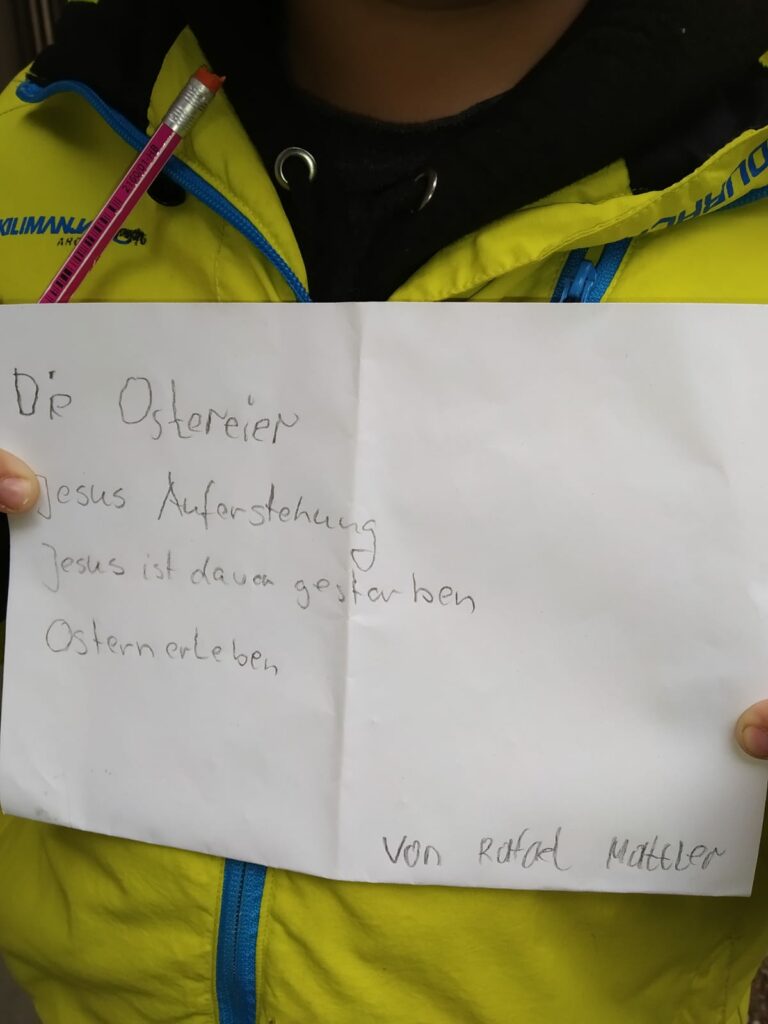 KILIMANJA
ARO
Die Ostereier
Jesus Auferstehung
Jesus ist davon gestorben
Ostern erleben
Von Rafael Mattler